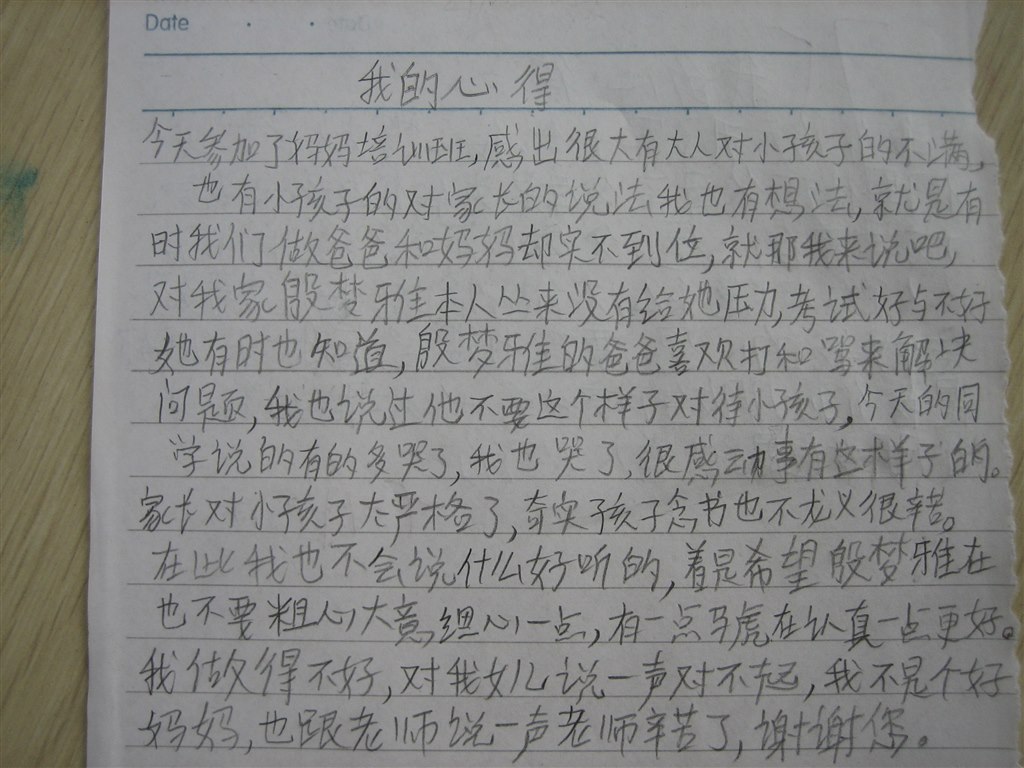 Date
我的心得
今天参加了妈妈培训班,感出很大有大人对小孩子的不满,
也有小孩子的对家长的说法我也有想法,就是有
时我们做爸爸和妈妈却实不到位,就那我来说吧,
对我家殷梦雅本人丛来没有给她压力,考试好与不好
她有时也知道,殷梦雅的爸爸喜欢打和骂来解决
问题,我也说过他不要这个样子对待小孩子,今天的同
学说的有的多哭了,我也哭了,很感动事有这样子的。
家长对小孩子太严格了,奇实孩子念书也不龙义很辛苦。
在此我也不会说什么好听的,着是希望殷梦雅在
也不要粗心大意细心一点,有一点马虎在认真一点更好。
我做得不好,对我女儿说一声对不起,我不是个好
妈妈,也跟老师说一声老师辛苦了,谢谢您。